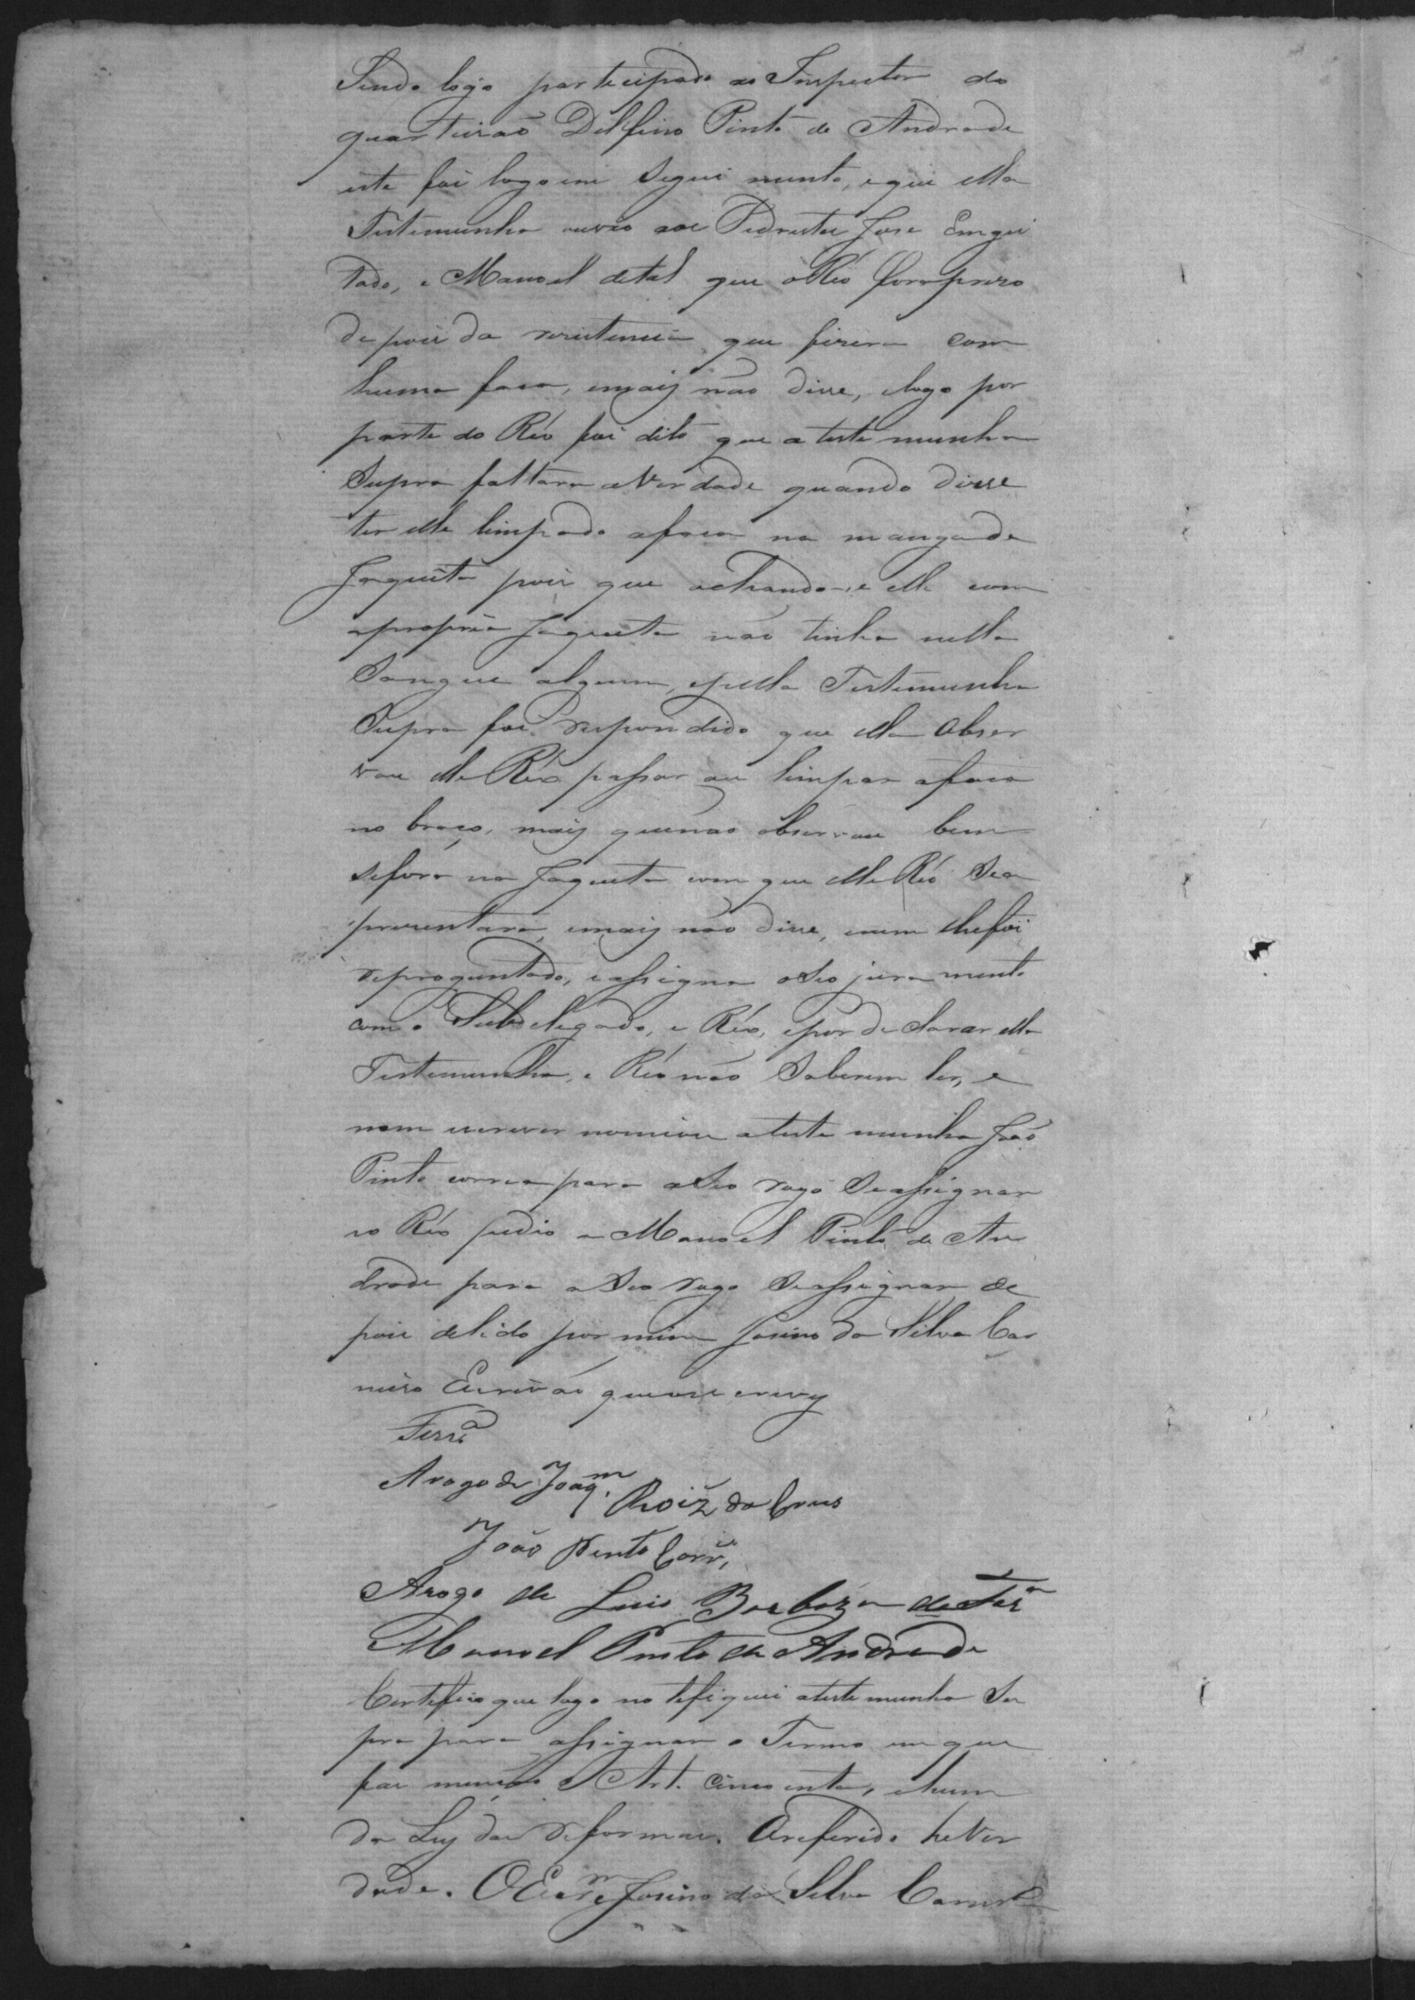 Sendo logo participado ao Inspector do
quarteirão Delfino Pinto de Andrade
este foi logo em seguimento, e que ella
Testemunha ouvio aos Pedestes Jose Emgei
tado, e Manoel de tal que o Réo fora prezo
depois da rezistencia que fizera com
huma faca, e mais não disse, e logo por
parte do Réo foi dito que a testemunha
Supra faltara a Verdade quando disse
ter elle limpado a faca na manga da
Jaqueta pois que achando-se elle com
a propria Jaqueta não tinha nella
Sangue algum, e pella Testemunha
Supra foi respondido que ella obser
vou elle Réo passar ou limpar a faca
no braço, mais que não observou bem
se fora na Jaqueta com que elle Réo Se a
prezentara, e mais não disse, e nem lhe foi
reproguntado, e assigna o Seo juramento
com o Subdelegado, e Réo, e por declarar ella
Testemunha, e Réo não Saberem ler, e
nem escrever nomiou a testemunha João
Pinto Correa para a Seo rogo Se assignar
e o Réo pedio a Manoel Pinto de An
drade para a Seo rogo Se assignar de
pois de lido por mim Josino da Silva Car
neiro Escrivão que o escrevy
Ferrª
Arogo de Joaqᵐ Roiz da Crus
João Pinto Corrª
Arogo de Luis Barboza da
Manoel Pinto de Andrade
Certefico que logo notefiquei a testemunha Su
pra para assignar o Termo em que
faz menção o Art. Cincoenta, e hum
da Ley das reformas. O referido he Ver
dade. O Escrᵐ Josino da Silva Carnrº